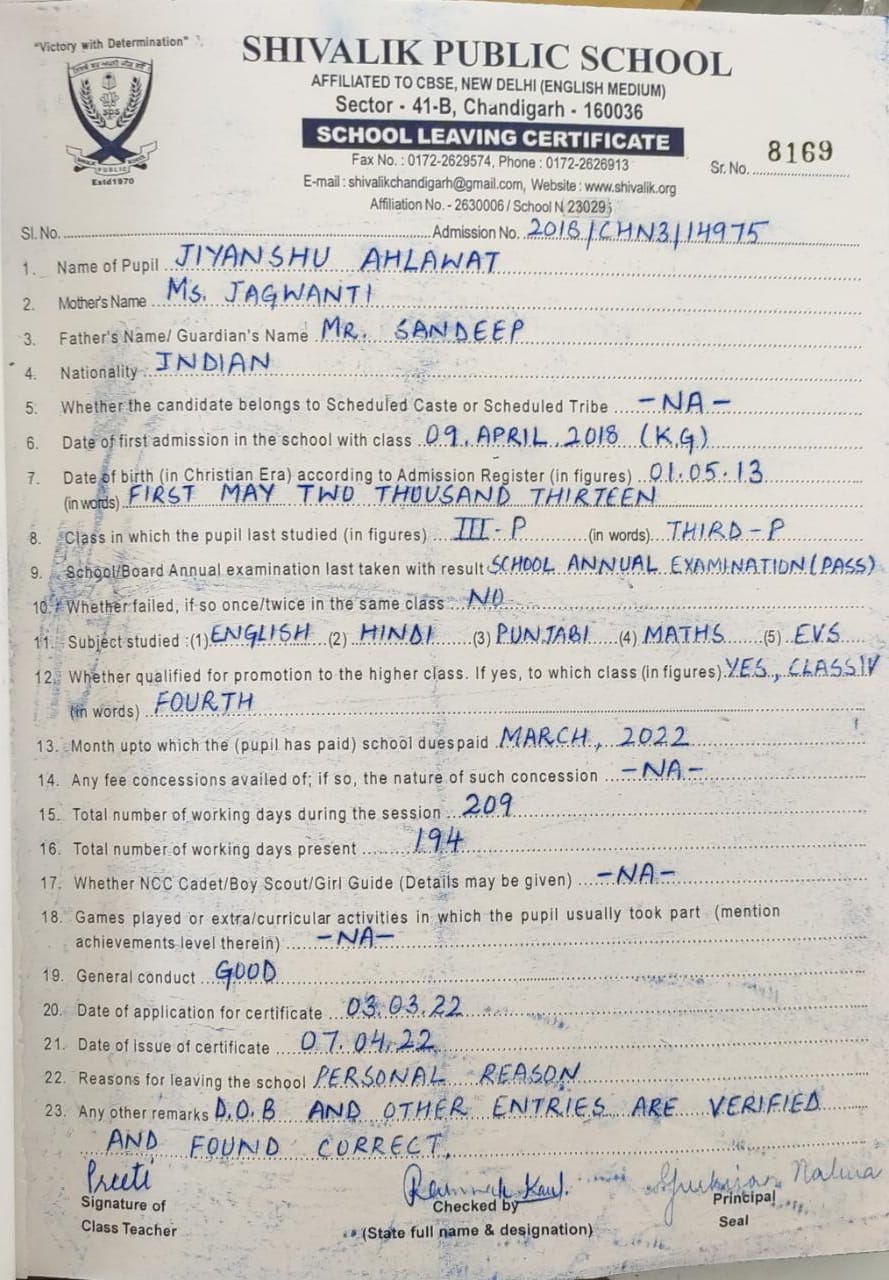 "Victory with Determination"
SHIVALIK PUBLIC SCHOOL
AFFILIATED TO CBSE, NEW DELHI (ENGLISH MEDIUM)
Sector - 41-B, Chandigarh - 160036
SCHOOL LEAVING CERTIFICATE
Fax No. : 0172-2629574, Phone : 0172-2626913
Sr. No. 8169
E-mail : shivalikchandigarh@gmail.com, Website : www.shivalik.org
Affiliation No. - 2630006 / School N 23029
SPS
SHIVALIK PUBLIC SCHOOL
Estd1970
Sl. No. Admission No. 2018/CHN3/14975
1. Name of Pupil JIYANSHU AHLAWAT
2. Mother's Name Ms. JAGWANTI
3. Father's Name/ Guardian's Name MR. SANDEEP
4. Nationality INDIAN
5. Whether the candidate belongs to Scheduled Caste or Scheduled Tribe -NA-
6. Date of first admission in the school with class 09. APRIL. 2018 (K.G)
7. Date of birth (in Christian Era) according to Admission Register (in figures) 01.05.13
(in words) FIRST MAY TWO THOUSAND THIRTEEN
8. Class in which the pupil last studied (in figures) III-P (in words) THIRD-P
9. School/Board Annual examination last taken with result SCHOOL ANNUAL EXAMINATION (PASS)
10. Whether failed, if so once/twice in the same class NO
11. Subject studied :(1) ENGLISH (2) HINDI (3) PUNJABI (4) MATHS (5) EVS
12. Whether qualified for promotion to the higher class. If yes, to which class (in figures) YES, CLASS IV
(in words) FOURTH
13. Month upto which the (pupil has paid) school dues paid MARCH, 2022
14. Any fee concessions availed of; if so, the nature of such concession -NA-
15. Total number of working days during the session 209
16. Total number of working days present 194
17. Whether NCC Cadet/Boy Scout/Girl Guide (Details may be given) -NA-
18. Games played or extra/curricular activities in which the pupil usually took part (mention
achievements level therein) -NA-
19. General conduct GOOD
20. Date of application for certificate 03.03.22
21. Date of issue of certificate 07.04.22
22. Reasons for leaving the school PERSONAL REASON
23. Any other remarks D.O.B AND OTHER ENTRIES ARE VERIFIED
AND FOUND CORRECT.
Preeti
Signature of
Class Teacher
Kaur.
Checked by
(State full name & designation)
Principal
Seal